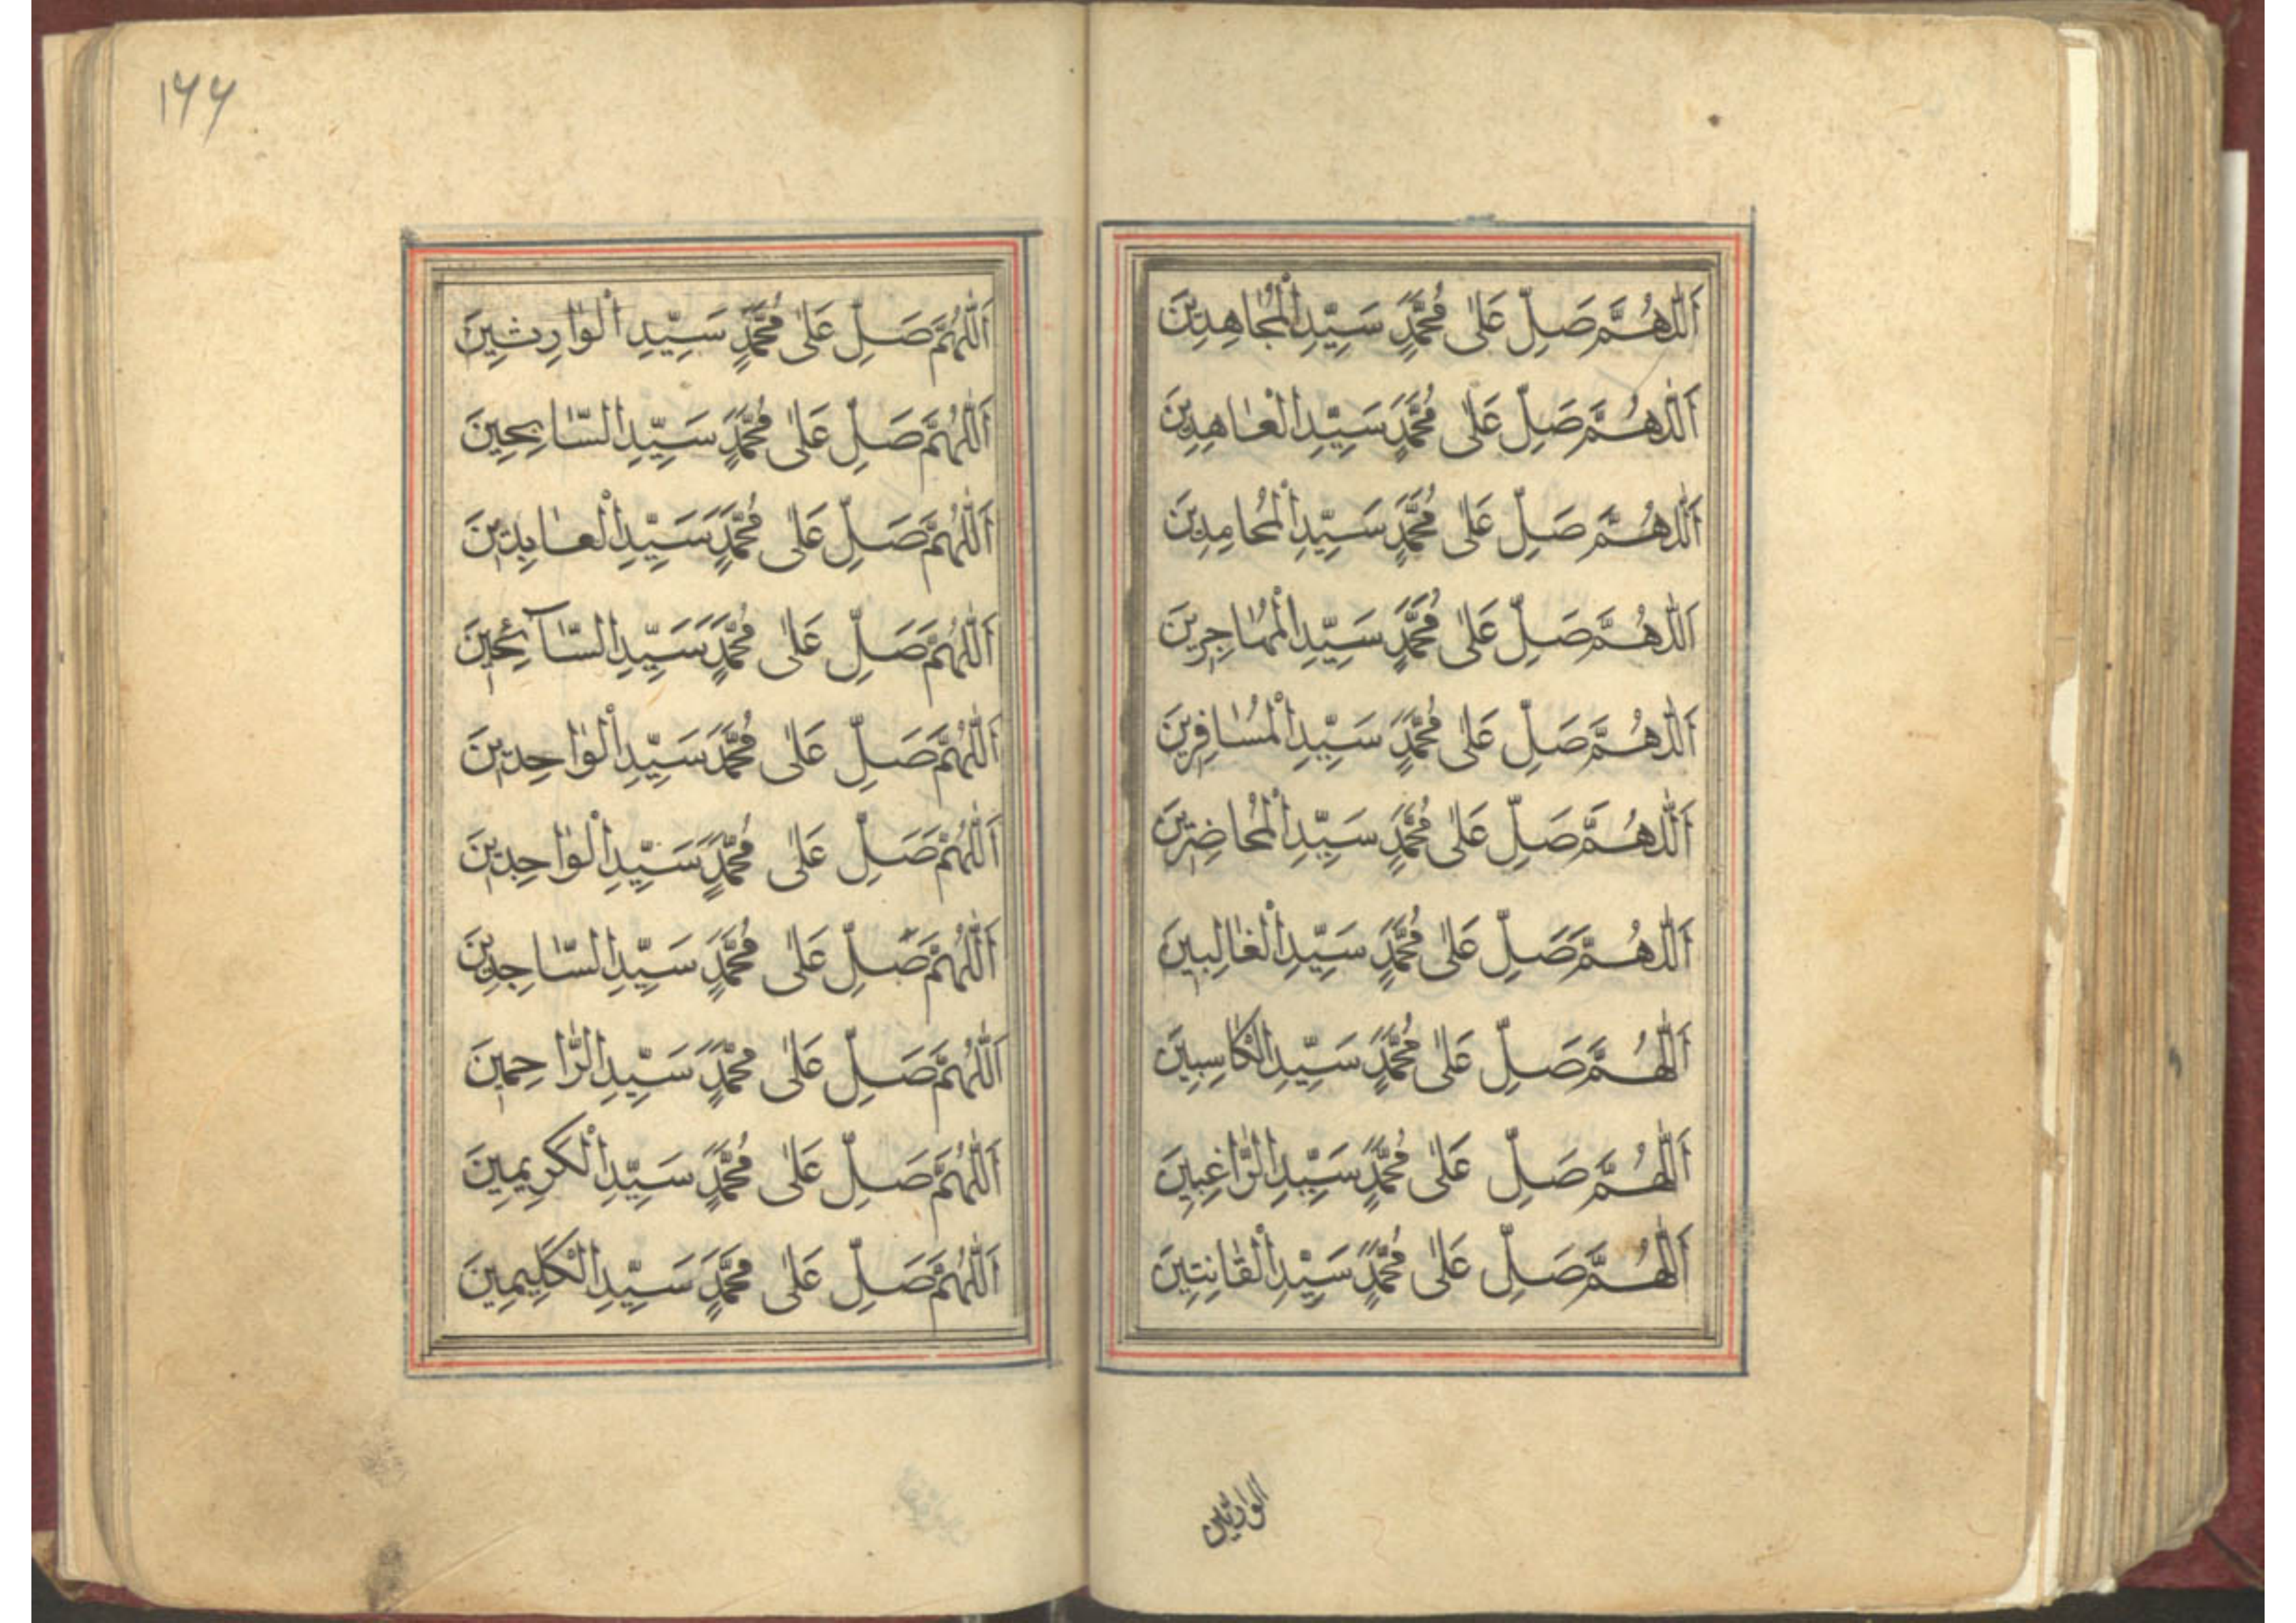 اَللّٰهُمَّ صَلِّ عَلٰى مُحَمَّدٍ سَيِّدِ الْمُجَاهِدِينَ
اَللّٰهُمَّ صَلِّ عَلٰى مُحَمَّدٍ سَيِّدِ الْعَاهِدِينَ
اَللّٰهُمَّ صَلِّ عَلٰى مُحَمَّدٍ سَيِّدِ الْمُحَامِدِينَ
اَللّٰهُمَّ صَلِّ عَلٰى مُحَمَّدٍ سَيِّدِ الْمُهَاجِرِينَ
اَللّٰهُمَّ صَلِّ عَلٰى مُحَمَّدٍ سَيِّدِ الْمُسَافِرِينَ
اَللّٰهُمَّ صَلِّ عَلٰى مُحَمَّدٍ سَيِّدِ الْمُحَاضِرِينَ
اَللّٰهُمَّ صَلِّ عَلٰى مُحَمَّدٍ سَيِّدِ الْغَالِبِينَ
اَللّٰهُمَّ صَلِّ عَلٰى مُحَمَّدٍ سَيِّدِ الْكَاسِبِينَ
اَللّٰهُمَّ صَلِّ عَلٰى مُحَمَّدٍ سَيِّدِ الرَّاغِبِينَ
اَللّٰهُمَّ صَلِّ عَلٰى مُحَمَّدٍ سَيِّدِ الْقَانِتِينَ
الوارثين
١٦٦
اَللّٰهُمَّ صَلِّ عَلٰى مُحَمَّدٍ سَيِّدِ الْوَارِثِينَ
اَللّٰهُمَّ صَلِّ عَلٰى مُحَمَّدٍ سَيِّدِ السَّابِحِينَ
اَللّٰهُمَّ صَلِّ عَلٰى مُحَمَّدٍ سَيِّدِ الْعَابِدِينَ
اَللّٰهُمَّ صَلِّ عَلٰى مُحَمَّدٍ سَيِّدِ السَّآئِحِينَ
اَللّٰهُمَّ صَلِّ عَلٰى مُحَمَّدٍ سَيِّدِ الْوَاحِدِينَ
اَللّٰهُمَّ صَلِّ عَلٰى مُحَمَّدٍ سَيِّدِ الْوَاحِدِينَ
اَللّٰهُمَّ صَلِّ عَلٰى مُحَمَّدٍ سَيِّدِ السَّاجِدِينَ
اَللّٰهُمَّ صَلِّ عَلٰى مُحَمَّدٍ سَيِّدِ الرَّاحِمِينَ
اَللّٰهُمَّ صَلِّ عَلٰى مُحَمَّدٍ سَيِّدِ الْكَرِيمِينَ
اَللّٰهُمَّ صَلِّ عَلٰى مُحَمَّدٍ سَيِّدِ الْكَلِيمِينَ